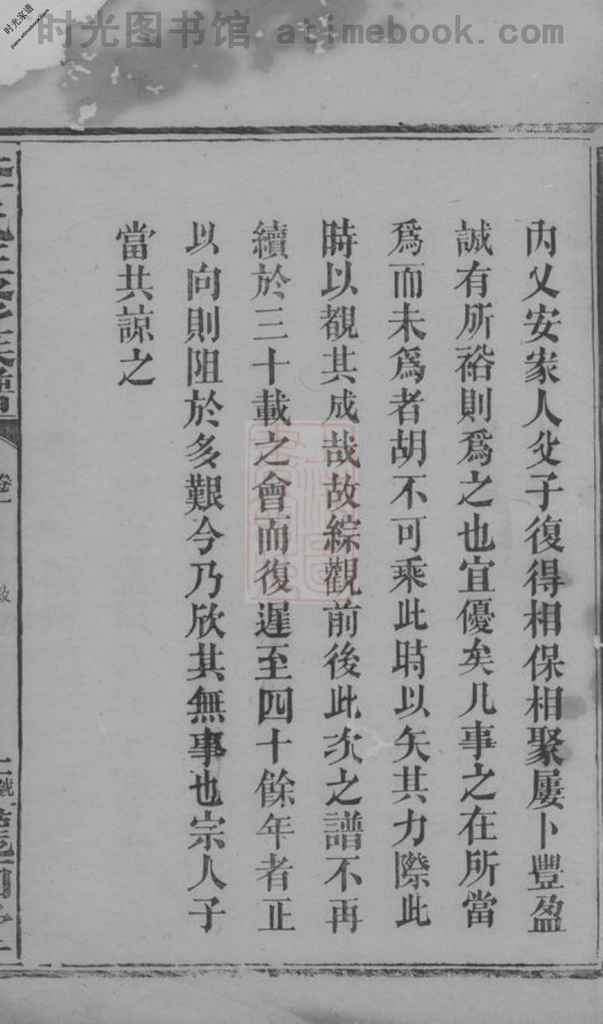 时光图书馆 atimebook.com
时光家谱
內乂安家人父子復得相保相聚屢卜豐盈
誠有所裕則爲之也宜優矣凡事之在所當
爲而未爲者胡不可乘此時以矢其力際此
時以覩其成哉故綜觀前後此次之譜不再
續於三十載之會而復遲至四十餘年者正
以向則阻於多艱今乃欣其無事也宗人子
當共諒之
卷一